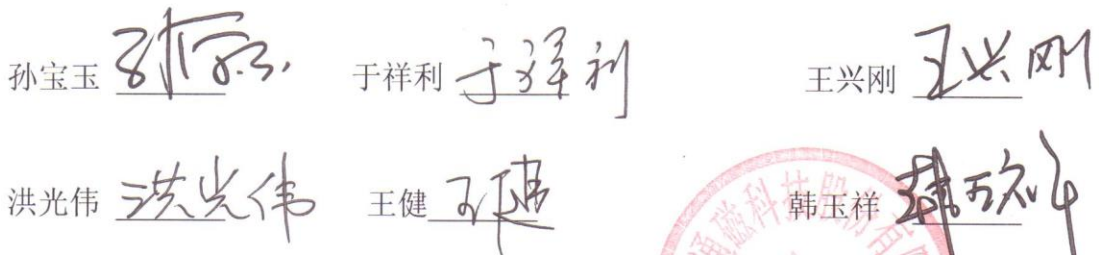 孙宝玉 孙宝玉 于祥利 于祥利 王兴刚 王兴刚
洪光伟 洪光伟 王健 王健 韩玉祥 韩玉祥
通磁科技股份有限